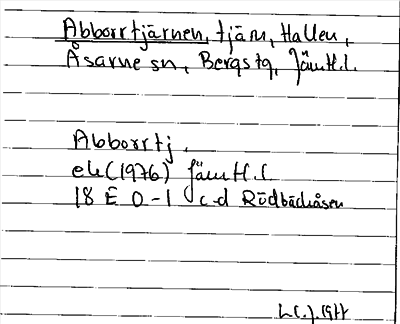 Abborrtjärnen, tjärn, Hallen,
Åsarne sn, Bergs tg, Jämtl.l.
Abborrtj.
ek (1976) Jämtl.l.
18 E 0-1 c-d Rödbäcksåsen